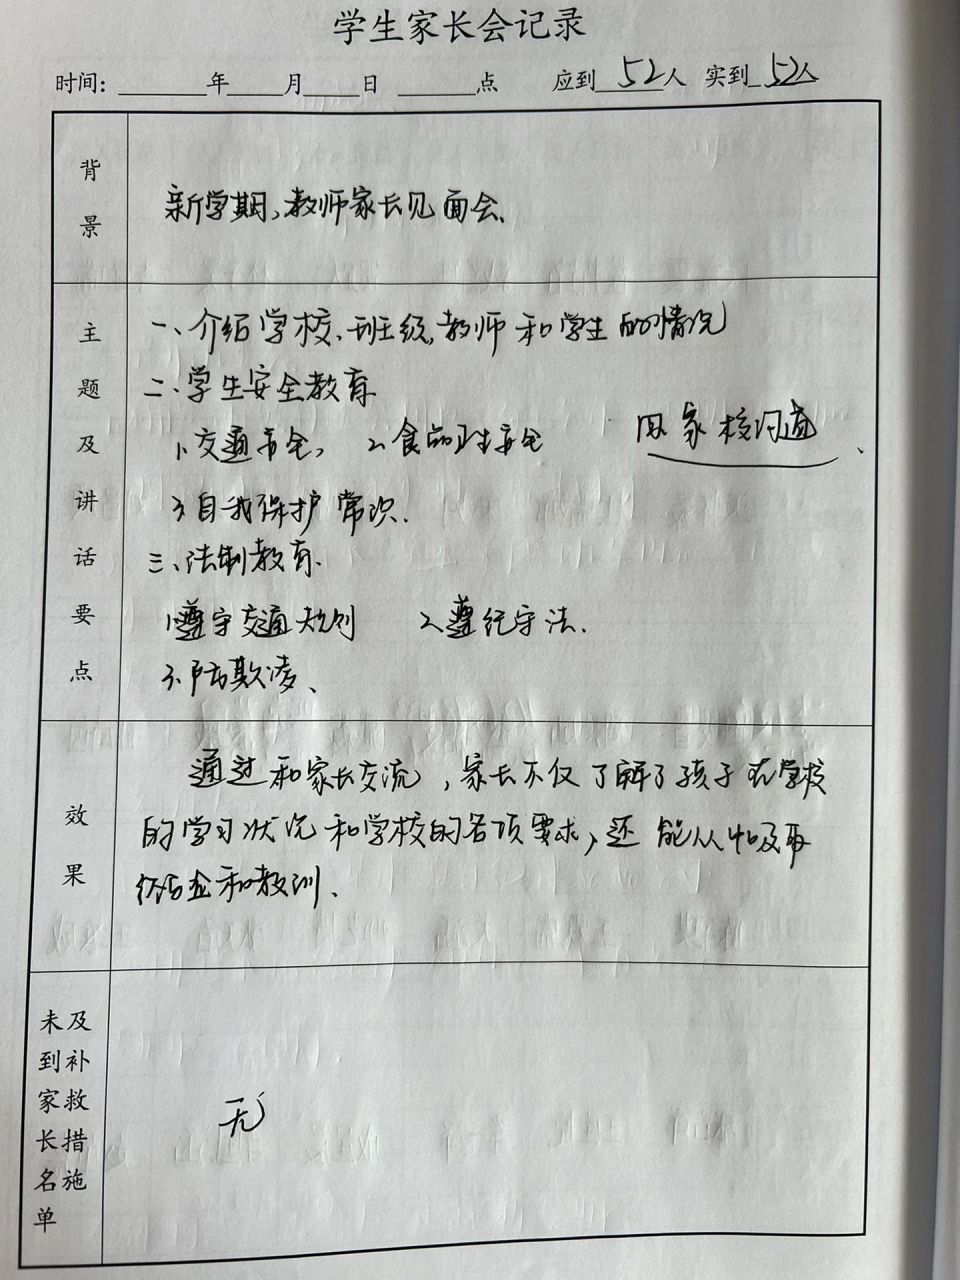 学生家长会记录
时间：____年____月____日 ____点 应到 52人 实到 52人
背景
新学期，教师家长见面会、
主题及讲话要点
一、介绍学校、班级、教师和学生的情况
二、学生安全教育
1、交通安全， 2、食品卫生安全 四 家校沟通、
3、自我保护常识.
三、法制教育.
1、遵守交通规则 2、遵纪守法.
3、防欺凌、
效果
通过和家长交流，家长不仅了解了孩子在学校
的学习状况和学校的各项要求，还能从中吸取
经验和教训、
未到家长名单及补救措施
无